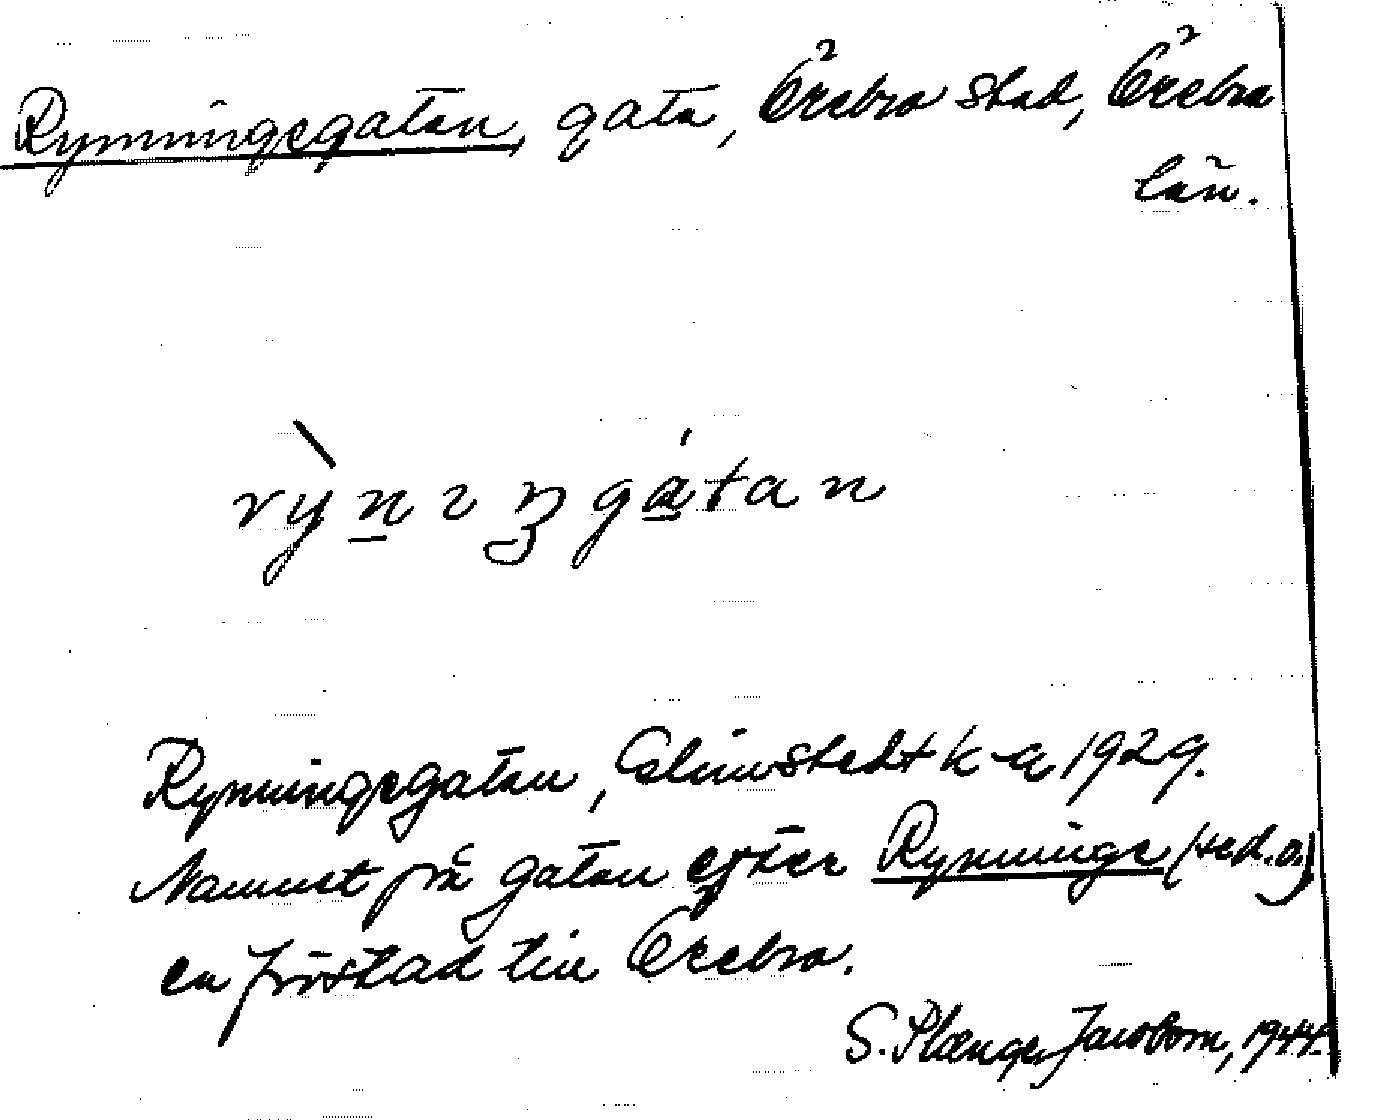 Rynningegatan, gata, Örebro stad, Örebro
län.
rỳnıŋgátan
Rynningegatan, Calmstedt k-a 1929.
Namnet på gatan efter Rynninge (se d.o.)
en förstad till Örebro.
S. Plænge Jacobson, 1944.